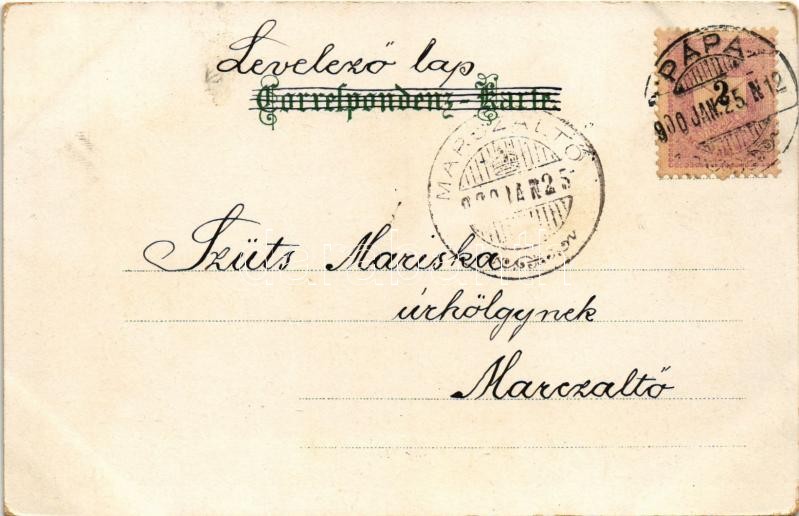 Levelező lap
Correspondenz-Karte.
PÁPA
2
900 JAN. 25. N 12
MARCZALTŐ
900 JAN 25
Szüts Mariska
úrhölgynek
Marczaltő